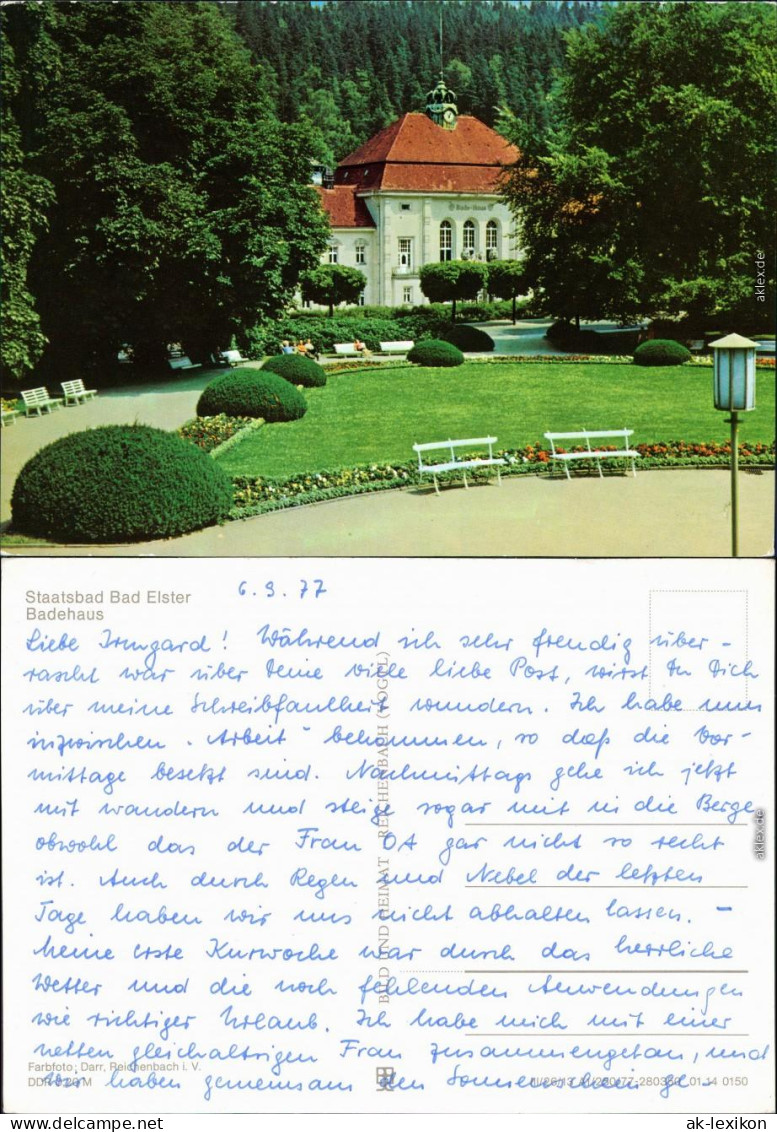 Bade-Haus
aklex.de
Staatsbad Bad Elster
Badehaus
6. 9. 77
Liebe Irmgard! Während ich sehr freudig über-
rascht war über Deine viele liebe Post, wirst Du Dich
über meine Schreibfaulheit wundern. Ich habe nun
inzwischen „Arbeit“ bekommen, so daß die Vor-
mittage besetzt sind. Nachmittags gehe ich jetzt
mit wandern und steige sogar mit in die Berge
obwohl das der Frau OA gar nicht so recht
ist. Auch durch Regen und Nebel der letzten
Tage haben wir uns nicht abhalten lassen. –
Meine erste Kurwoche war durch das herrliche
Wetter und die noch fehlenden Anwendungen
wie richtiger Urlaub. Ich habe mich mit einer
netten gleichaltrigen Frau zusammengetan, und
wir haben gemeinsam den Sonnenschein ge-
BILD UND HEIMAT REICHENBACH (VOGTL)
Farbfoto: Darr, Reichenbach i. V.
DDR M
01 14 0150
aklex.de
www.ansichtskarten-lexikon.de
ak-lexikon.com